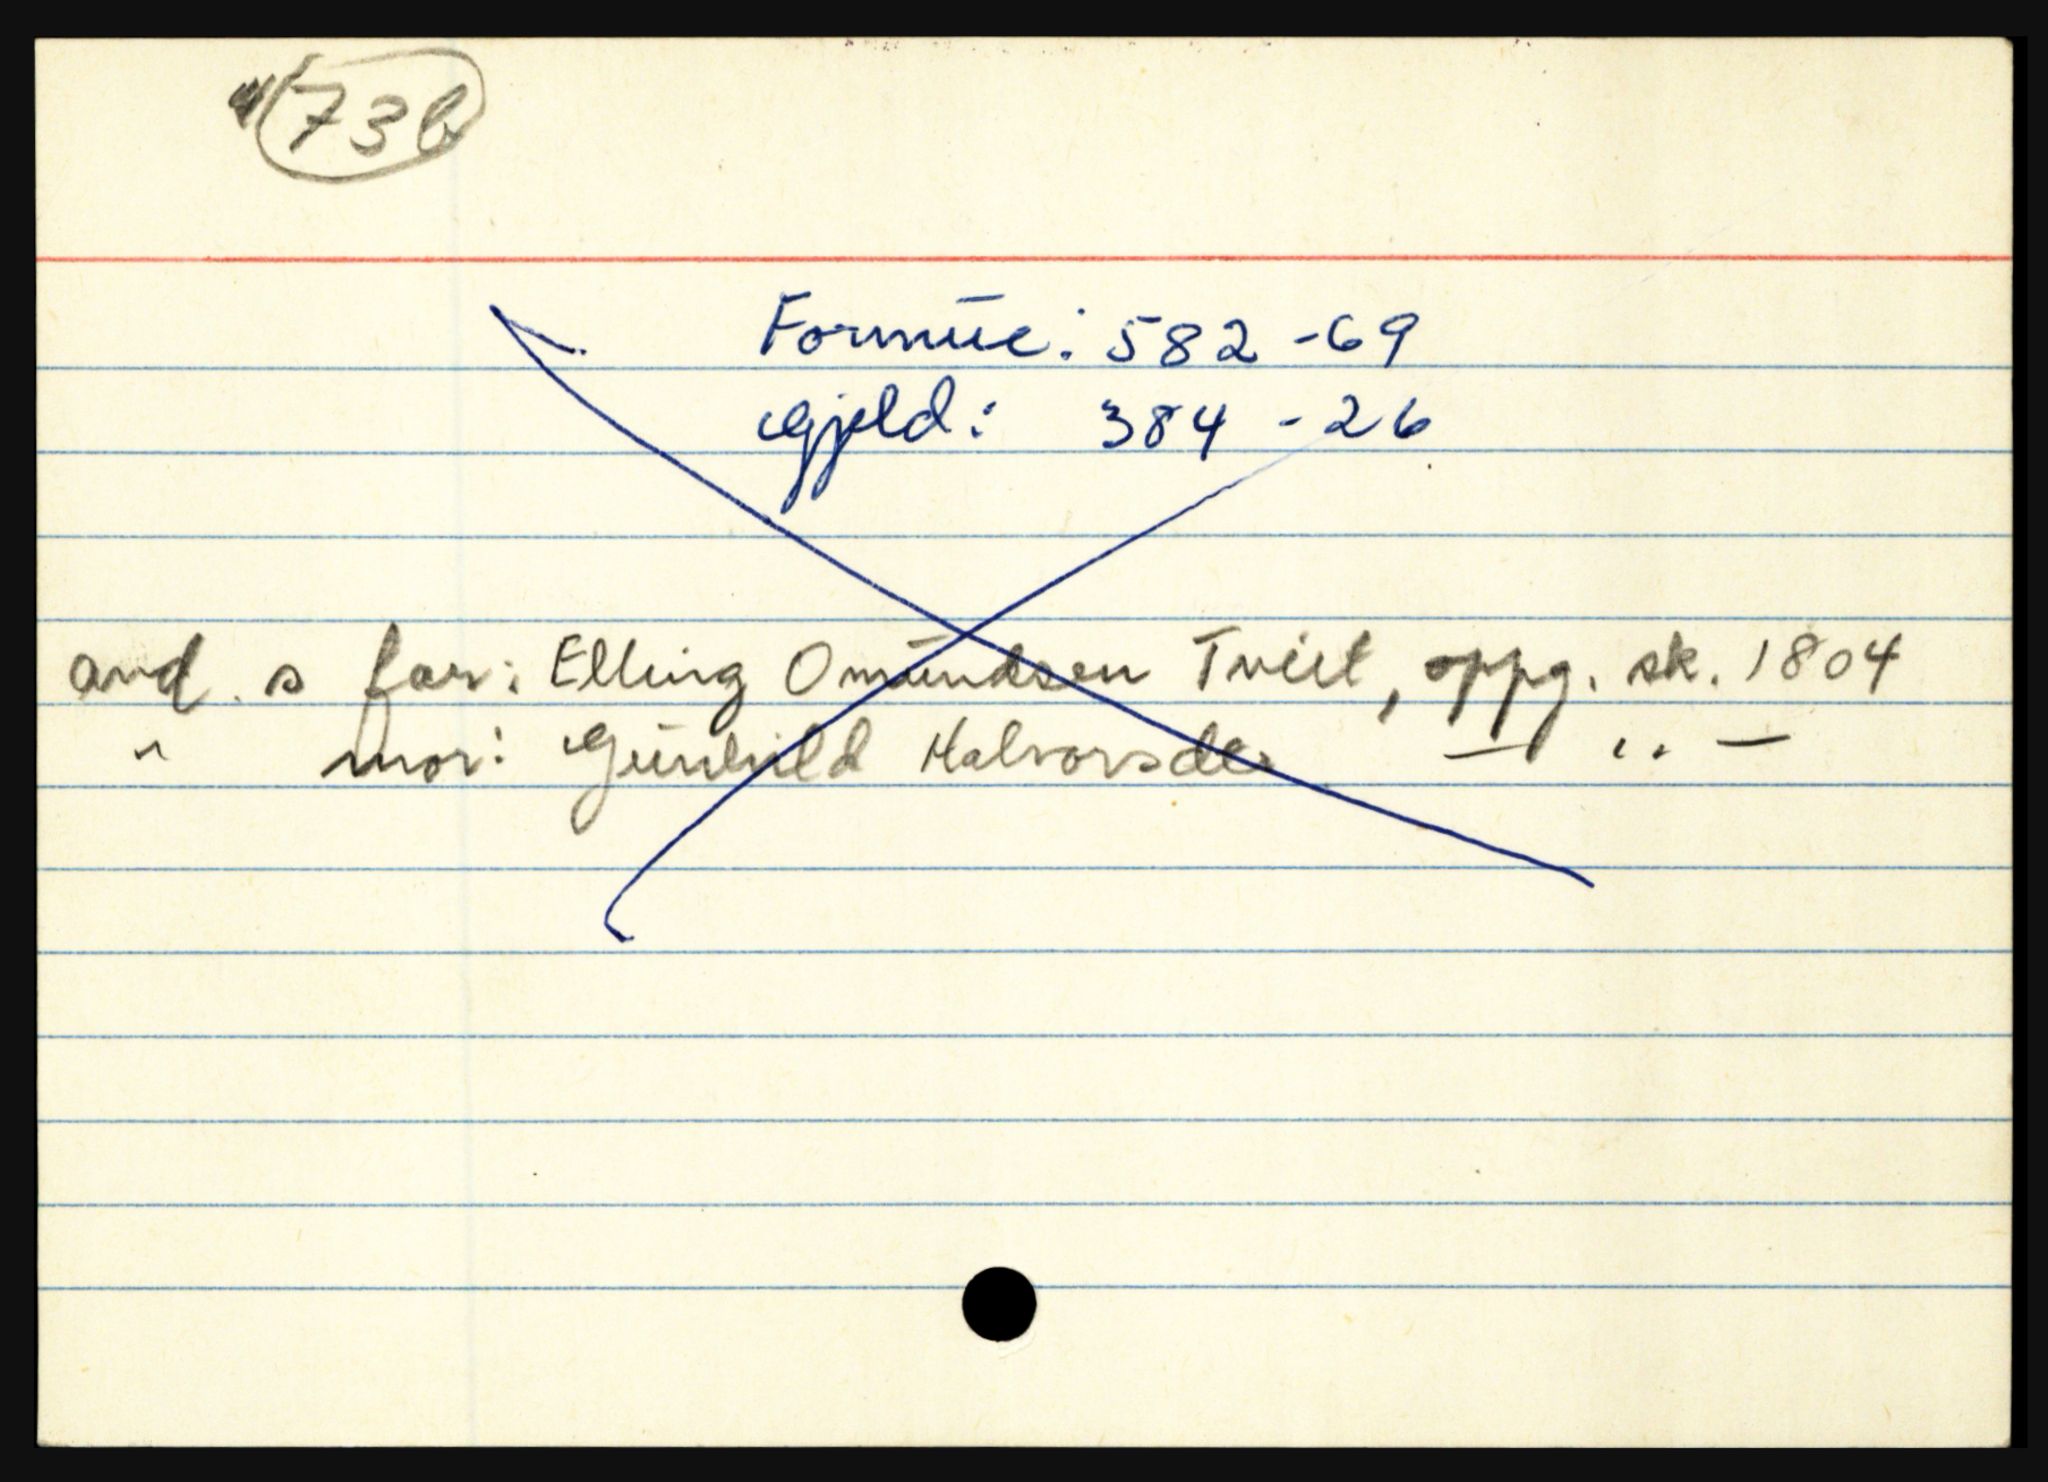 73b
Formue: 582 - 69
Gjeld: 384 - 26
avd. s far: Elling Omundsen Tveit, oppg. sk. 1804
" mor: Gunhild Halvorsdtr — " —